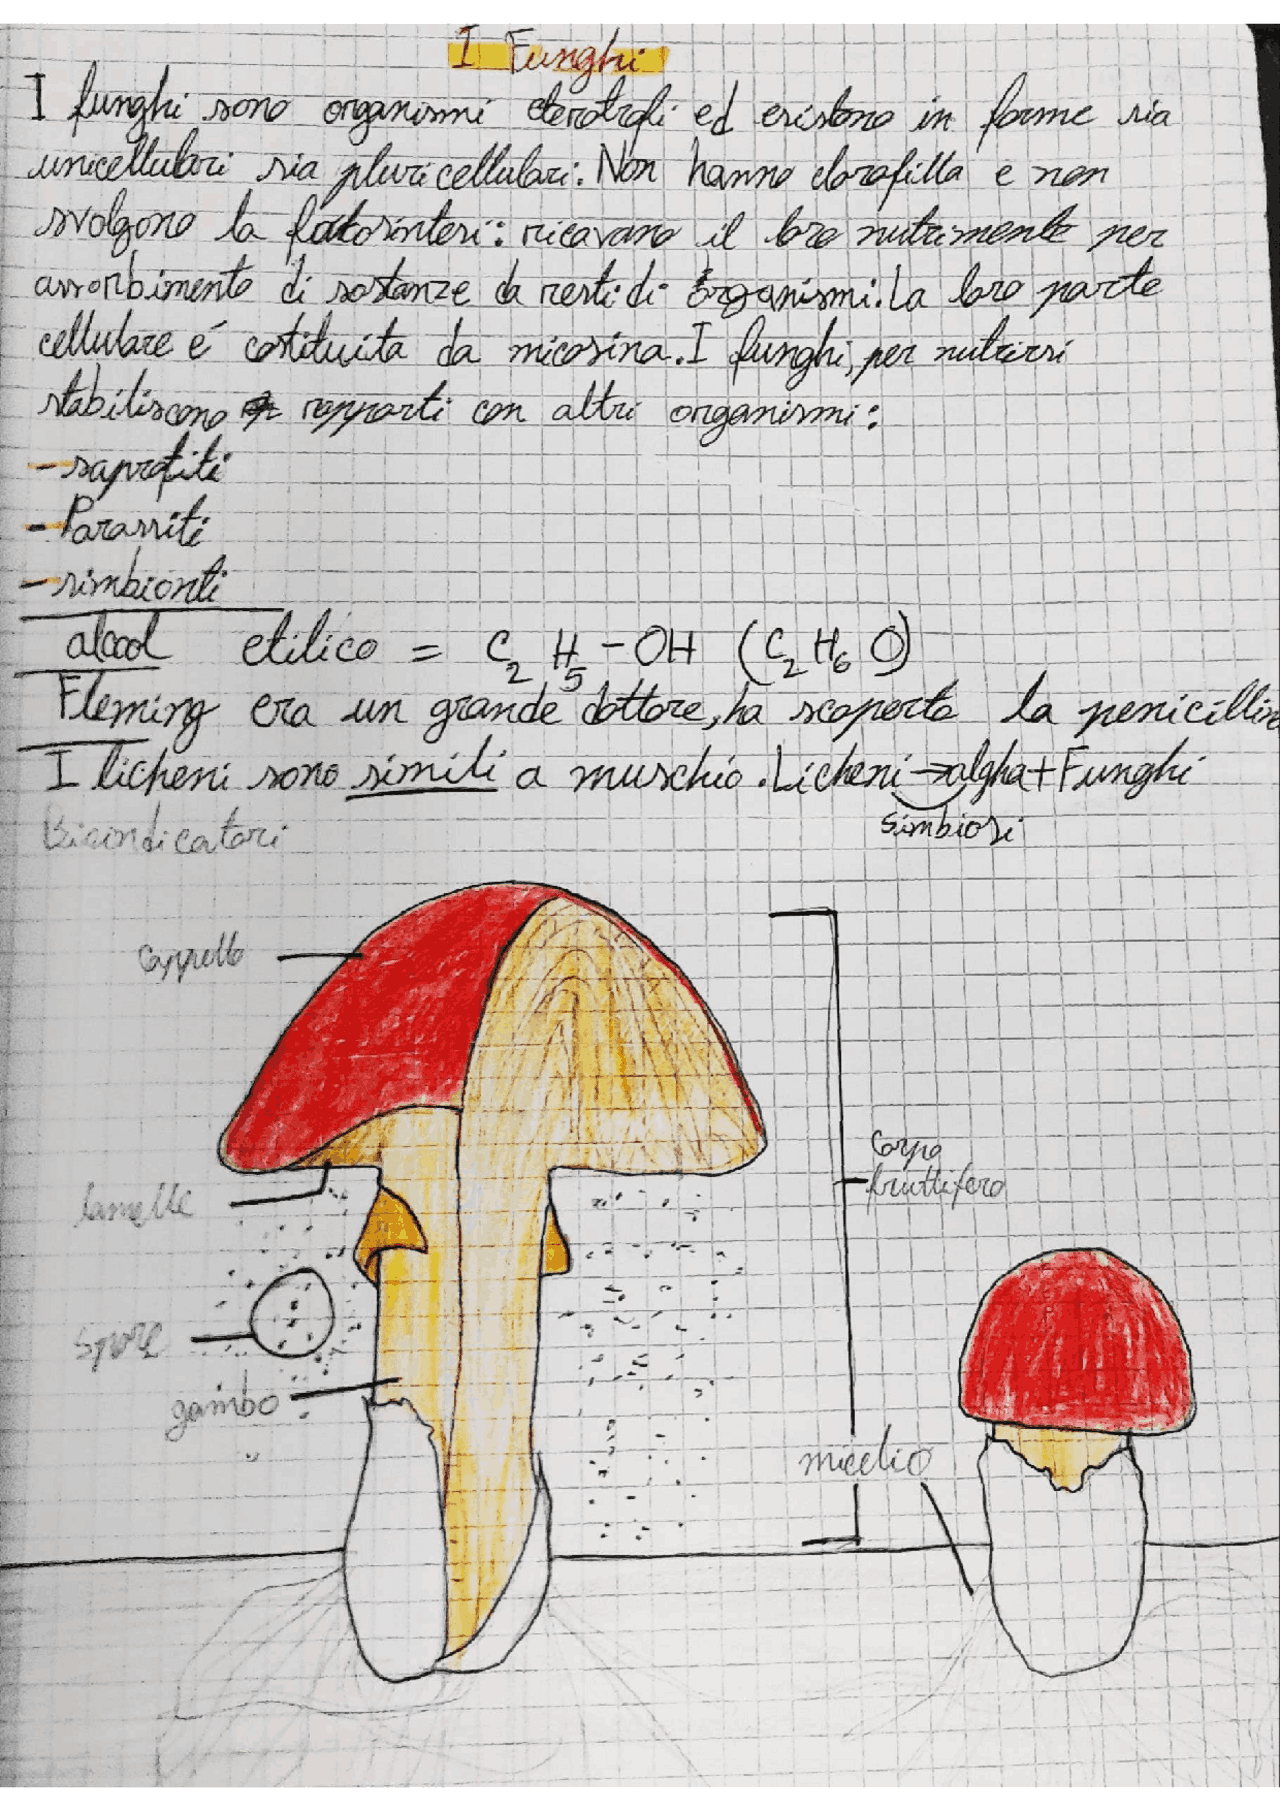 I Funghi
I funghi sono organismi eterotrofi ed esistono in forme sia
unicellulari sia pluricellulari. Non hanno clorofilla e non
svolgono la fotosintesi: ricavano il loro nutrimento per
assorbimento di sostanze da resti di organismi. La loro parte
cellulare é costituita da micosina. I funghi, per nutrirsi
stabiliscono rapporti con altri organismi:
- saprofiti
- Parassiti
- simbionti
alcool etilico = C2 H5 - OH (C2 H6 O)
Fleming era un grande dottore, ha scoperto la penicillin
I licheni sono simili a muschio. Licheni → algha + Funghi
simbiosi
Bioindicatori
Cappello
Corpo
fruttifero
lamelle
spore
gambo
micelio